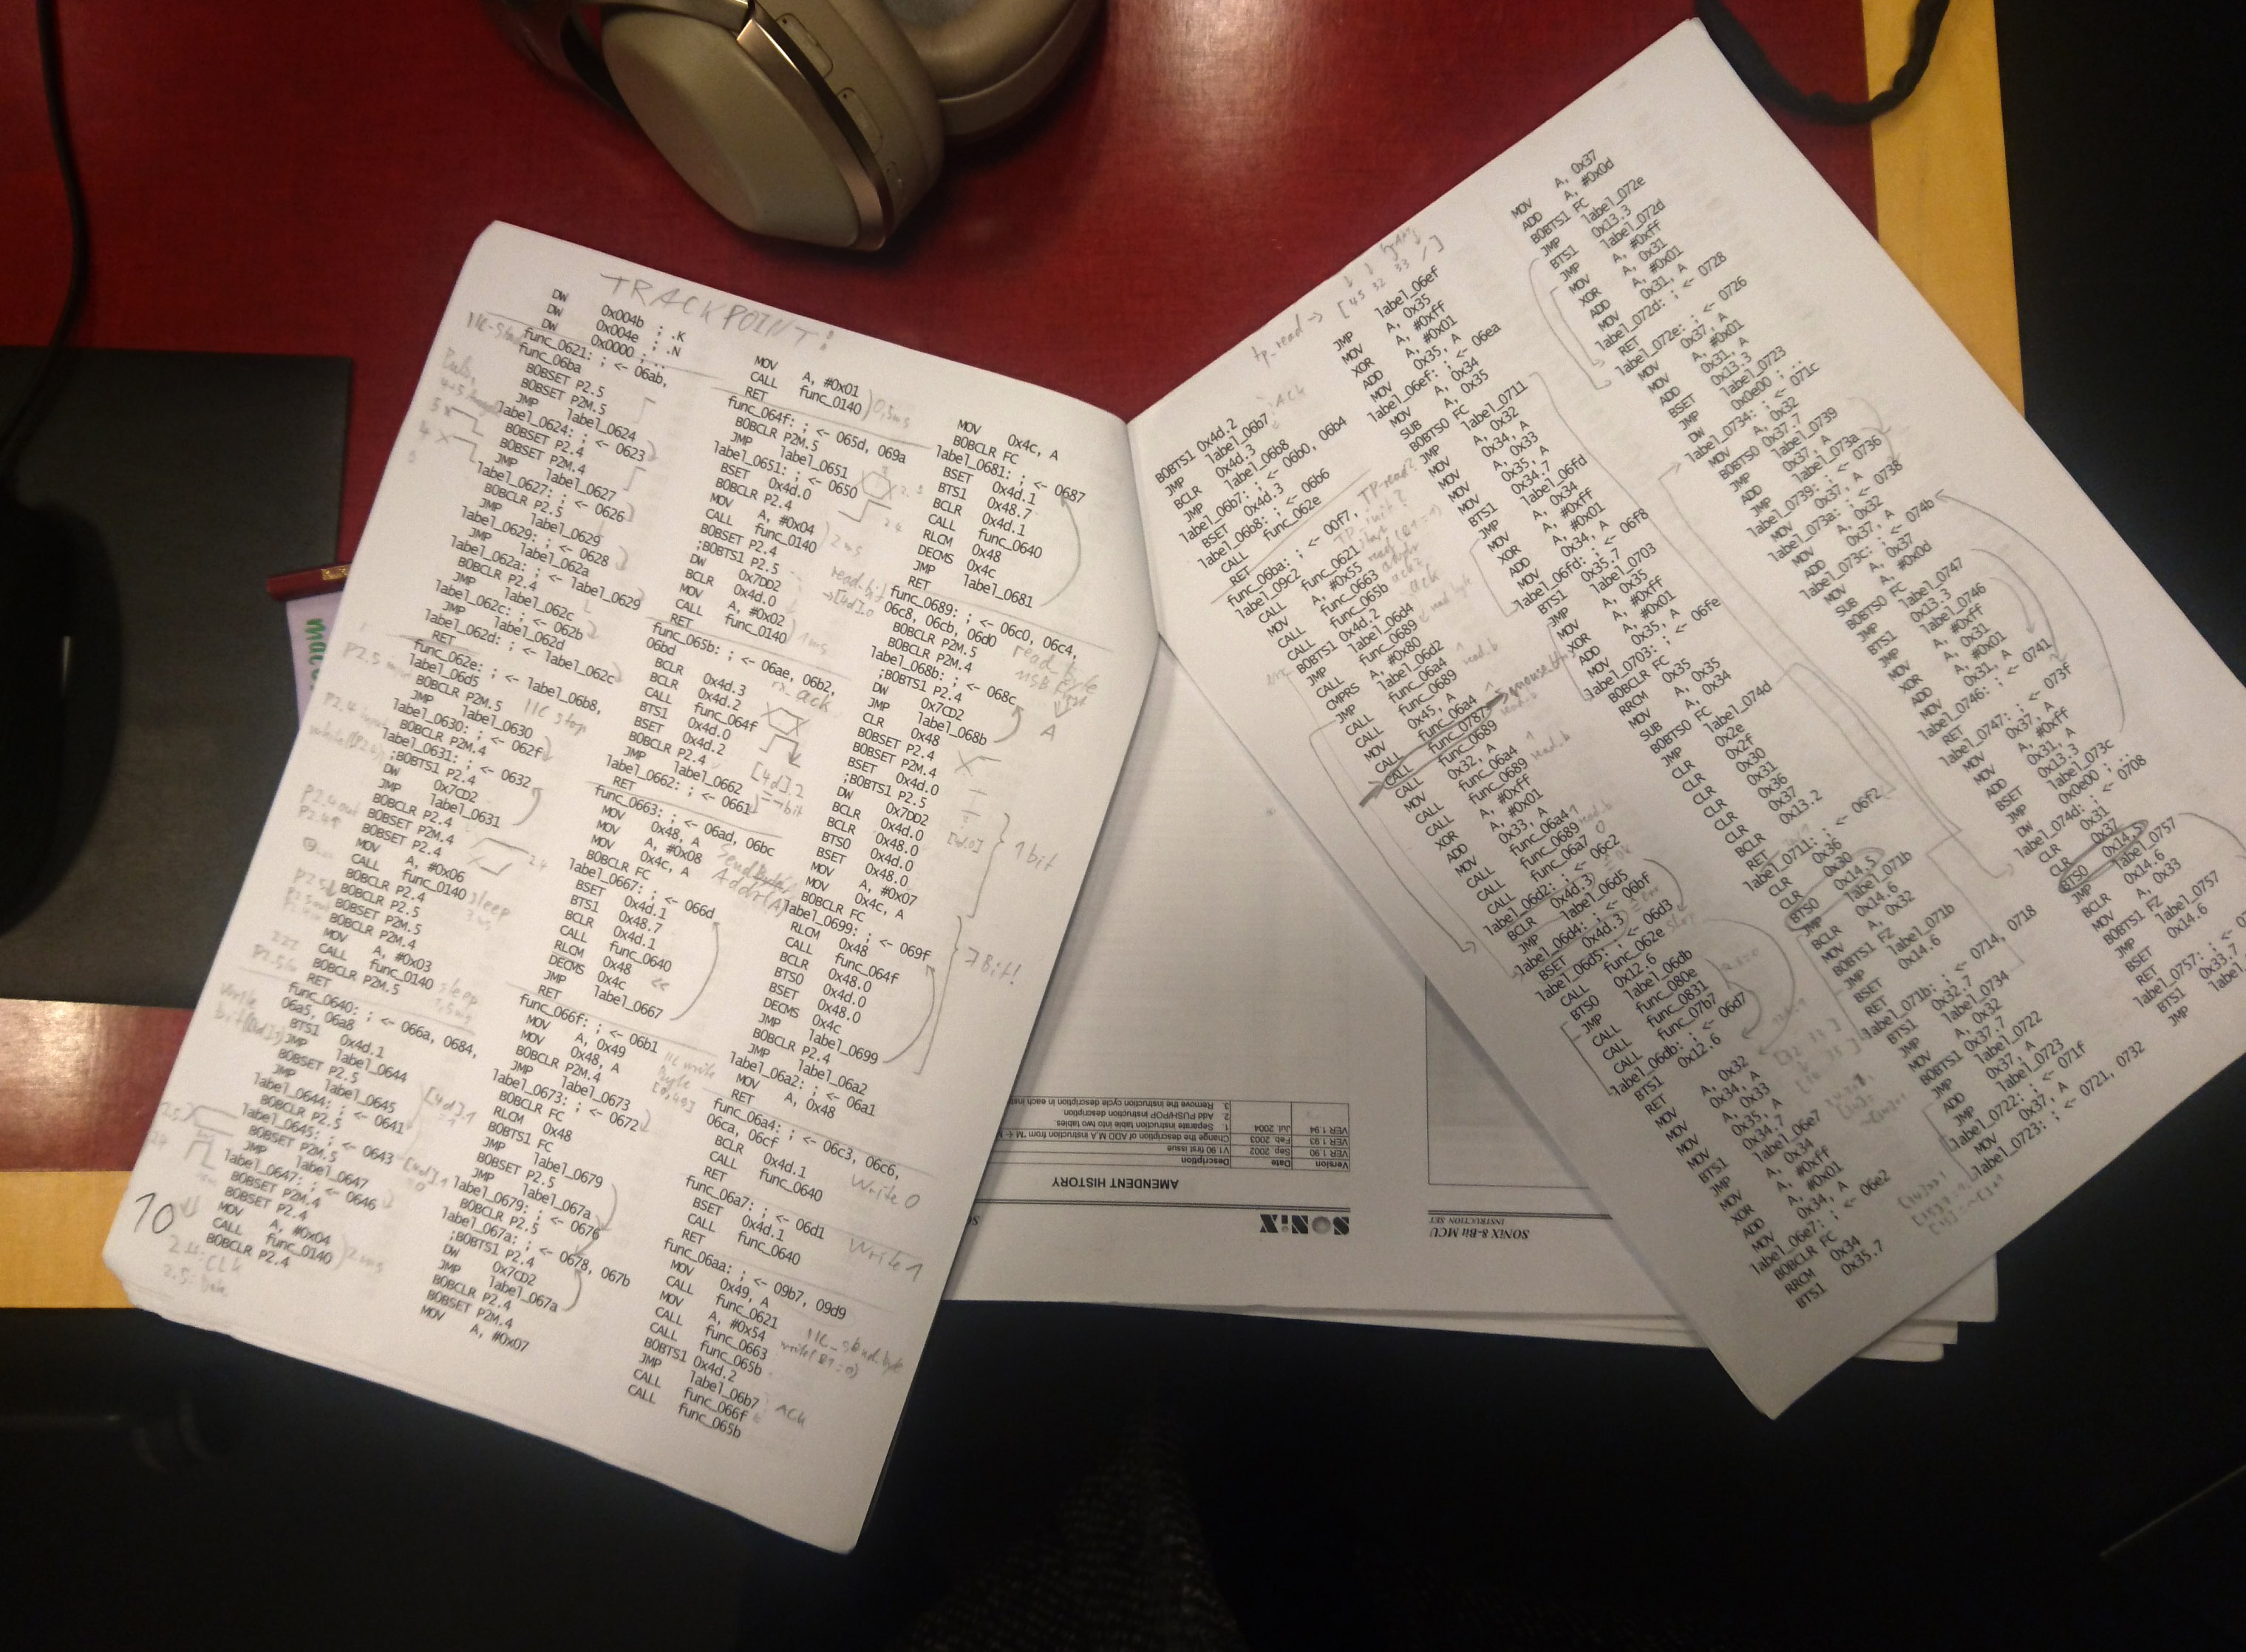 TRACKPOINT:
DW 0x004b ; .K
DW 0x004e ; .N
DW 0x0000 ; ..
func_0621: ; <- 06ab,
06ba
B0BSET P2.5
B0BSET P2M.5
JMP label_0624
label_0624: ; <- 0623
B0BSET P2.4
B0BSET P2M.4
JMP label_0627
label_0627: ; <- 0626
B0BCLR P2.5
JMP label_0629
label_0629: ; <- 0628
JMP label_062a
label_062a: ; <- label_0629
B0BCLR P2.4
JMP label_062c
label_062c: ; <- 062b
JMP label_062d
label_062d: ; <- label_062c
RET
func_062e: ; <- label_06b8,
label_06d5
B0BCLR P2M.5
JMP label_0630
label_0630: ; <- 062f
B0BCLR P2M.4
label_0631: ; <- 0632
;B0BTS1 P2.4
DW 0x7CD2
JMP label_0631
B0BCLR P2.4
B0BSET P2M.4
B0BSET P2.4
MOV A, #0x06
CALL func_0140
B0BCLR P2.4
B0BCLR P2.5
B0BSET P2M.5
B0BCLR P2M.4
MOV A, #0x03
CALL func_0140
B0BCLR P2M.5
RET
func_0640: ; <- 066a, 0684,
06a5, 06a8
BTS1 0x4d.1
JMP label_0644
B0BSET P2.5
JMP label_0645
label_0644: ; <- 0641
B0BCLR P2.5
label_0645: ; <- 0643
B0BSET P2M.5
JMP label_0647
label_0647: ; <- 0646
B0BSET P2M.4
B0BSET P2.4
MOV A, #0x04
CALL func_0140
B0BCLR P2.4
IIC stop
sleep
2ms
10
MOV A, #0x01
CALL func_0140
RET
func_064f: ; <- 065d, 069a
B0BCLR P2M.5
JMP label_0651
label_0651: ; <- 0650
BSET 0x4d.0
B0BCLR P2.4
MOV A, #0x04
CALL func_0140
B0BSET P2.4
;B0BTS1 P2.5
DW 0x7DD2
BCLR 0x4d.0
MOV A, #0x02
CALL func_0140
RET
func_065b: ; <- 06ae, 06b2,
06bd
BCLR 0x4d.3
BCLR 0x4d.2
CALL func_064f
BTS1 0x4d.0
BSET 0x4d.2
B0BCLR P2.4
JMP label_0662
label_0662: ; <- 0661
RET
func_0663: ; <- 06ad, 06bc
MOV 0x48, A
MOV A, #0x08
MOV 0x4c, A
B0BCLR FC
label_0667: ; <- 066d
BSET 0x4d.1
BTS1 0x48.7
BCLR 0x4d.1
CALL func_0640
RLCM 0x48
DECMS 0x4c
JMP label_0667
RET
func_066f: ; <- 06b1
MOV A, 0x49
MOV 0x48, A
B0BCLR P2M.4
JMP label_0673
label_0673: ; <- 0672
B0BCLR FC
RLCM 0x48
B0BTS1 FC
JMP label_0679
B0BSET P2.5
JMP label_067a
label_0679: ; <- 0676
B0BCLR P2.5
label_067a: ; <- 0678, 067b
;B0BTS1 P2.4
DW 0x7CD2
JMP label_067a
B0BCLR P2.4
B0BSET P2M.4
MOV A, #0x07
0,5ms
2ms
read_bit
1ms
MOV 0x4c, A
B0BCLR FC
label_0681: ; <- 0687
BSET 0x4d.1
BTS1 0x48.7
BCLR 0x4d.1
CALL func_0640
RLCM 0x48
DECMS 0x4c
JMP label_0681
RET
func_0689: ; <- 06c0, 06c4,
06c8, 06cb, 06d0
B0BCLR P2M.5
B0BCLR P2M.4
label_068b: ; <- 068c
;B0BTS1 P2.4
DW 0x7CD2
JMP label_068b
CLR 0x48
B0BSET P2.4
B0BSET P2M.4
BSET 0x4d.0
;B0BTS1 P2.5
DW 0x7DD2
BCLR 0x4d.0
BCLR 0x48.0
BTS0 0x4d.0
BSET 0x48.0
MOV A, #0x07
MOV 0x4c, A
B0BCLR FC
label_0699: ; <- 069f
RLCM 0x48
CALL func_064f
BCLR 0x48.0
BTS0 0x4d.0
BSET 0x48.0
DECMS 0x4c
JMP label_0699
B0BCLR P2.4
JMP label_06a2
label_06a2: ; <- 06a1
MOV A, 0x48
RET
func_06a4: ; <- 06c3, 06c6,
06ca, 06cf
BCLR 0x4d.1
CALL func_0640
RET
func_06a7: ; <- 06d1
BSET 0x4d.1
CALL func_0640
RET
func_06aa: ; <- 09b7, 09d9
MOV 0x49, A
CALL func_0621
MOV A, #0x54
CALL func_0663
CALL func_065b
B0BTS1 0x4d.2
JMP label_06b7
CALL func_066f
CALL func_065b
read_byte
1 bit
7 Bit!
Write 0
Write 1
ACK
B0BTS1 0x4d.2
JMP label_06b7
BCLR 0x4d.3
JMP label_06b8
label_06b7: ; <- 06b0, 06b4
BSET 0x4d.3
label_06b8: ; <- 06b6
CALL func_062e
RET
func_06ba: ; <- 00f7,
label_09c2
CALL func_0621
MOV A, #0x55
CALL func_0663
CALL func_065b
B0BTS1 0x4d.2
JMP label_06d4
CALL func_0689
CMPRS A, #0x80
JMP label_06d2
CALL func_06a4
CALL func_0689
MOV 0x45, A
CALL func_06a4
CALL func_0787
CALL func_0689
MOV 0x32, A
CALL func_06a4
CALL func_0689
XOR A, #0xff
ADD A, #0x01
MOV 0x33, A
CALL func_06a4
CALL func_0689
CALL func_06a7
label_06d2: ; <- 06c2
BCLR 0x4d.3
JMP label_06d5
label_06d4: ; <- 06bf
BSET 0x4d.3
label_06d5: ; <- 06d3
CALL func_062e
BTS0 0x12.6
JMP label_06db
CALL func_080e
CALL func_0831
CALL func_07b7
label_06db: ; <- 06d7
BTS1 0x12.6
RET
MOV A, 0x32
MOV 0x34, A
MOV A, 0x33
MOV 0x35, A
BTS1 0x34.7
JMP label_06e7
MOV A, 0x34
XOR A, #0xff
ADD A, #0x01
MOV 0x34, A
label_06e7: ; <- 06e2
B0BCLR FC
RRCM 0x34
BTS1 0x35.7
JMP label_06ef
MOV A, 0x35
XOR A, #0xff
ADD A, #0x01
MOV 0x35, A
label_06ef: ; <- 06ea
MOV A, 0x34
SUB A, 0x35
B0BTS0 FC
JMP label_0711
MOV A, 0x32
MOV 0x34, A
MOV A, 0x33
MOV 0x35, A
BTS1 0x34.7
JMP label_06fd
MOV A, 0x34
XOR A, #0xff
ADD A, #0x01
MOV 0x34, A
label_06fd: ; <- 06f8
BTS1 0x35.7
JMP label_0703
MOV A, 0x35
XOR A, #0xff
ADD A, #0x01
MOV 0x35, A
label_0703: ; <- 06fe
B0BCLR FC
RRCM 0x35
MOV A, 0x35
SUB A, 0x34
B0BTS0 FC
JMP label_074d
CLR 0x2e
CLR 0x2f
CLR 0x30
CLR 0x31
CLR 0x36
CLR 0x37
BCLR 0x13.2
RET
label_0711: ; <- 06f2
CLR 0x36
CLR 0x30
BTS0 0x14.5
JMP label_071b
BCLR 0x14.6
MOV A, 0x32
B0BTS1 FZ
JMP label_071b
BSET 0x14.6
RET
label_071b: ; <- 0714, 0718
BTS1 0x32.7
JMP label_0734
MOV A, 0x32
B0BTS1 0x37.7
JMP label_0722
ADD 0x37, A
JMP label_0723
label_0722: ; <- 071f
MOV 0x37, A
label_0723: ; <- 0721, 0732
MOV A, 0x37
ADD A, #0x0d
B0BTS1 FC
JMP label_072e
BTS1 0x13.3
JMP label_072d
MOV A, #0xff
XOR A, 0x31
ADD A, #0x01
MOV 0x31, A
label_072d: ; <- 0728
RET
label_072e: ; <- 0726
MOV 0x37, A
MOV A, #0x01
ADD 0x31, A
BSET 0x13.3
JMP label_0723
DW 0x0e00 ; ..
label_0734: ; <- 071c
MOV A, 0x32
B0BTS0 0x37.7
JMP label_0739
ADD 0x37, A
JMP label_073a
label_0739: ; <- 0736
MOV 0x37, A
label_073a: ; <- 0738
MOV A, 0x32
ADD 0x37, A
label_073c: ; <- 074b
MOV A, 0x37
SUB A, #0x0d
B0BTS0 FC
JMP label_0747
BTS1 0x13.3
JMP label_0746
MOV A, #0xff
XOR A, 0x31
ADD A, #0x01
MOV 0x31, A
label_0746: ; <- 0741
RET
label_0747: ; <- 073f
MOV 0x37, A
MOV A, #0xff
ADD 0x31, A
BSET 0x13.3
JMP label_073c
DW 0x0e00 ; ..
label_074d: ; <- 0708
CLR 0x31
CLR 0x37
BTS0 0x14.5
JMP label_0757
BCLR 0x14.6
MOV A, 0x33
B0BTS1 FZ
JMP label_0757
BSET 0x14.6
RET
label_0757: ; <-
BTS1 0x33.7
JMP
SONiX
SONiX 8-Bit MCU
INSTRUCTION SET
AMENDENT HISTORY
Version Date Description
VER 1.90 Sep. 2002 V1.90 first issue
VER 1.93 Feb. 2003
VER 1.94 Jul. 2004 1. Separate instruction table into two tables.
2. Add PUSH/POP instruction description
3. Remove the instruction cycle description in each